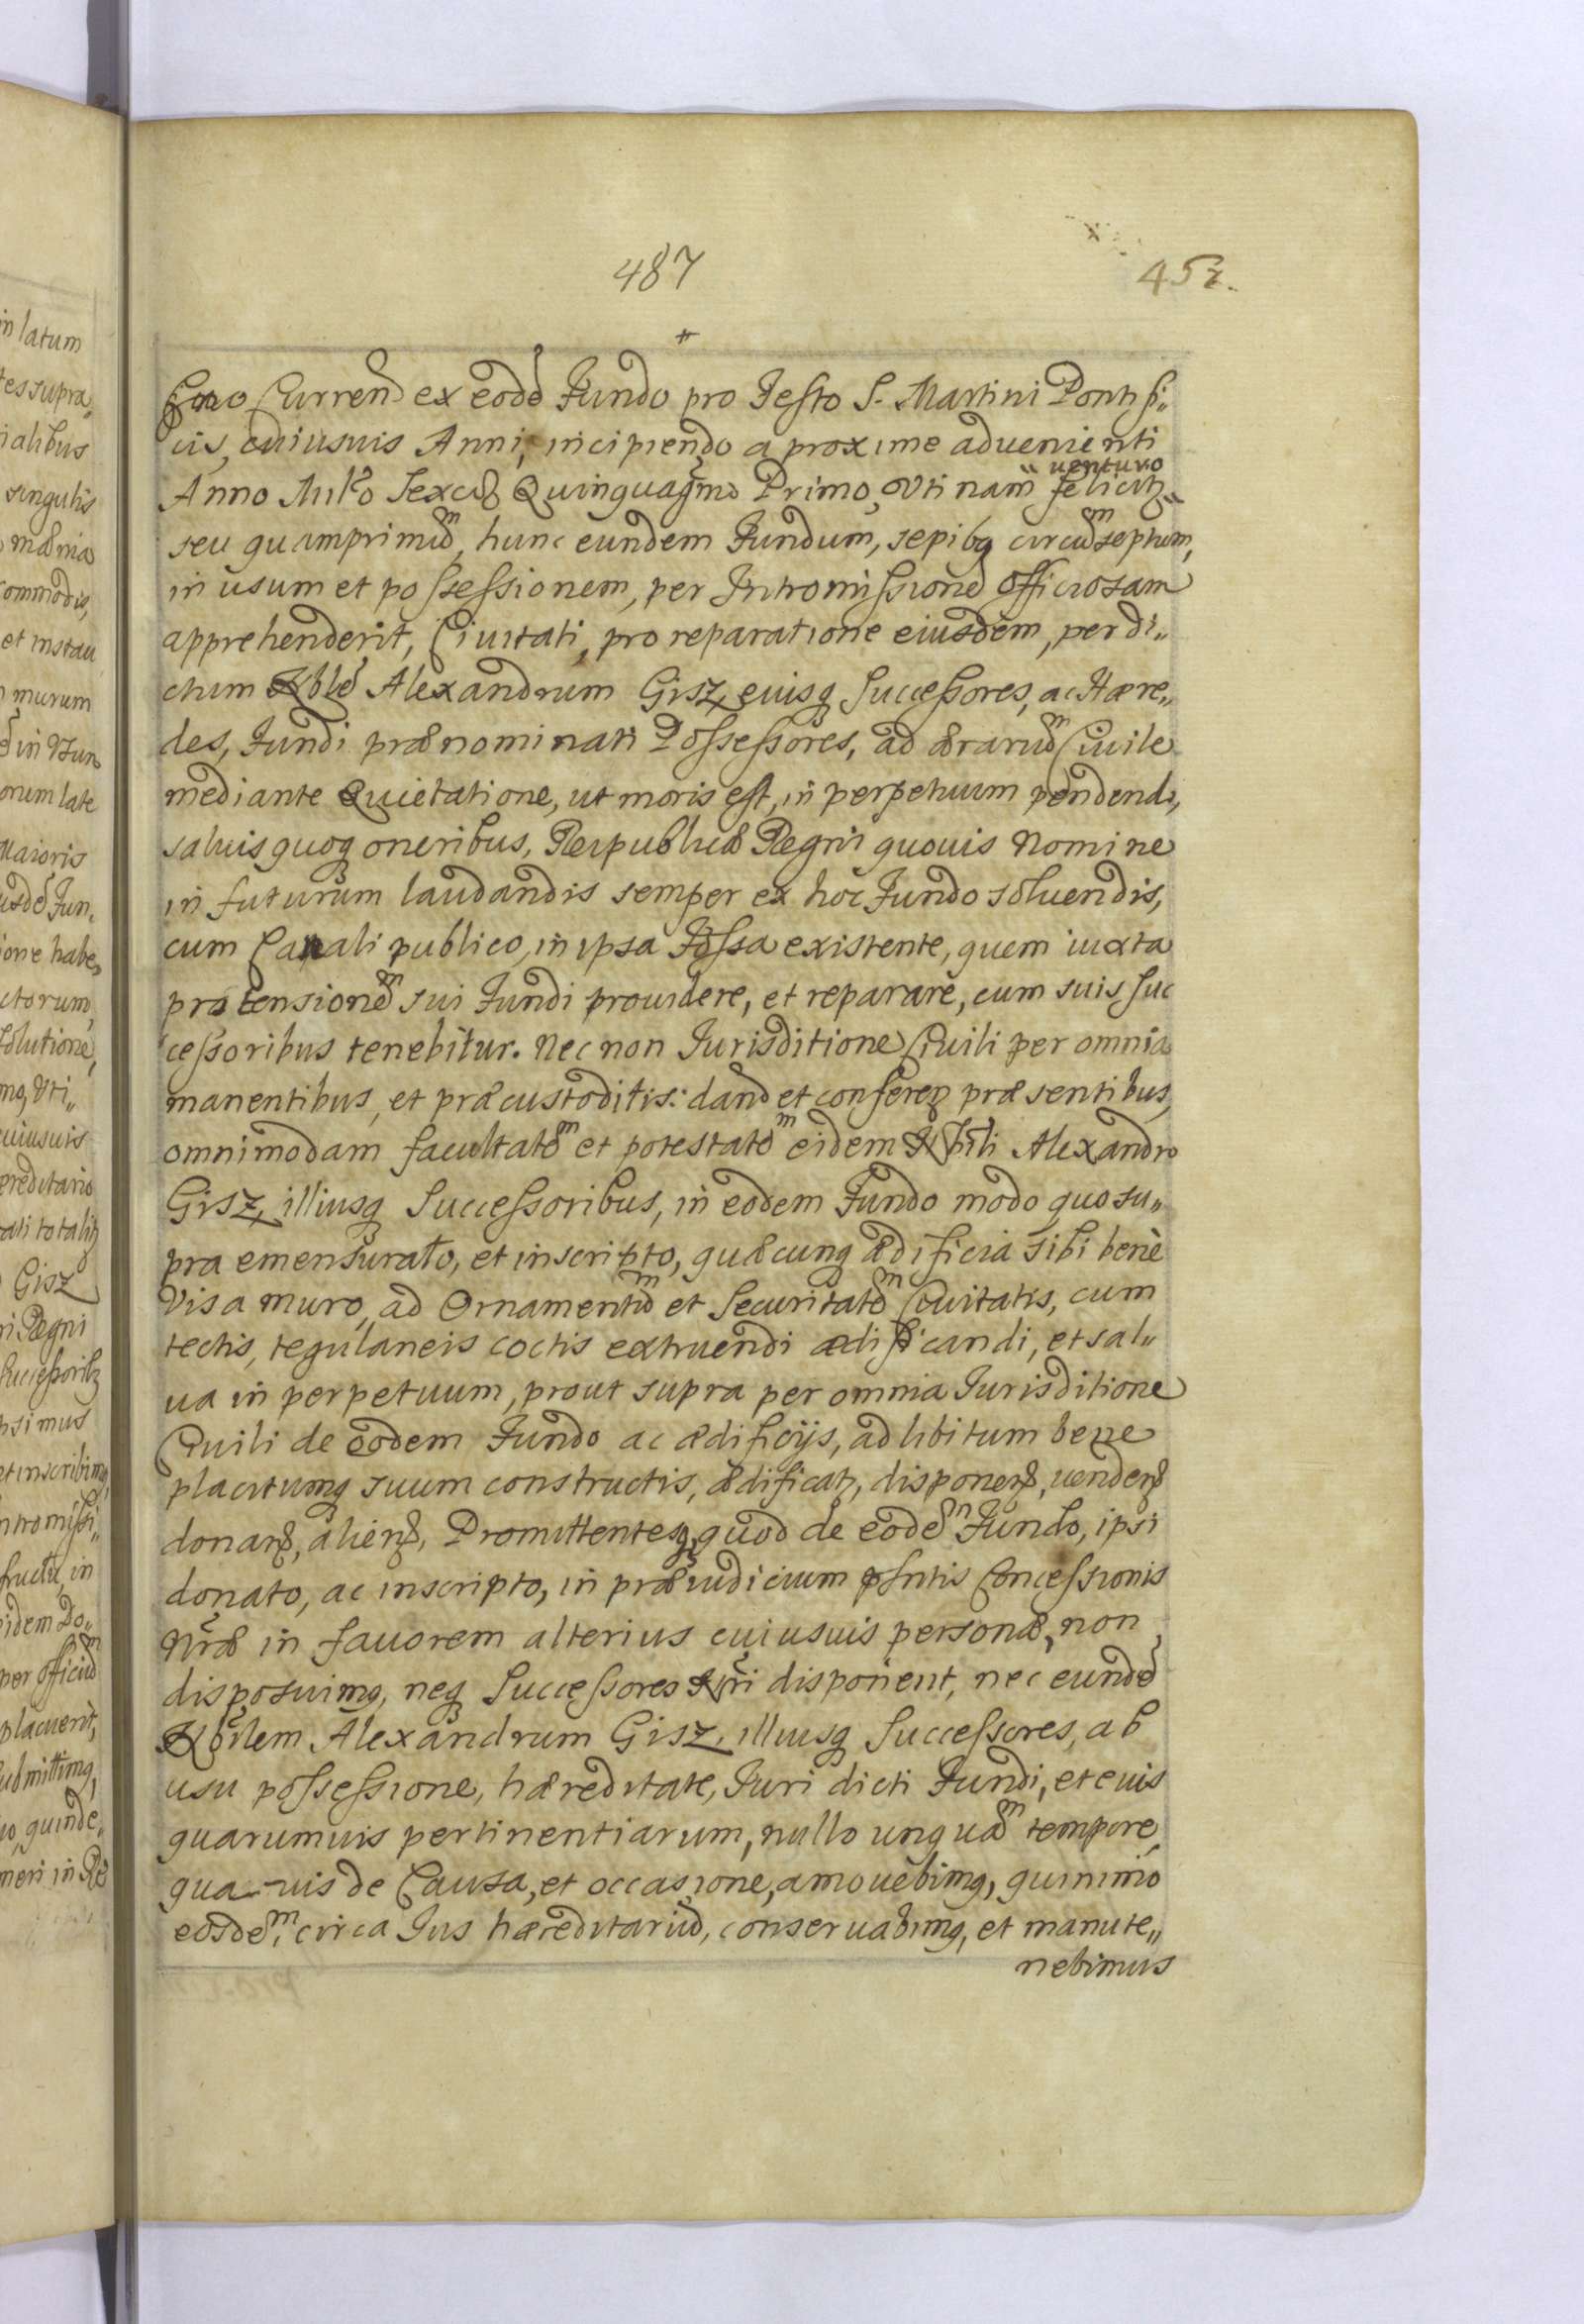 487
457.
Currend ex eodē Fundo pro Festo S. Martini Pontifi„
cis, cuiusuis Anni, incipiendo a proxime aduenienti
uenturo
Anno Mil̃o Sexcē Quinquagm̃o Primo, Vti nam felicit̃
seu quamprimum, hunc eundem Fundum, sepibq circumseptum,
in usum et possessionem, per Intromissionē officiosam
apprehenderit, Ciuitati, pro reparatione eiusdem, per di„
ctum Nblē Alexandrum Gisz, euisq Successores, ac Hære„
des, Fundi prænominati Possessores, ad ærarium Ciuile
mediante Quietatione, ut moris est, in perpetuum pendendo,
saluis quoq oneribus, Reipublicæ Regni quouis Nomine
in futurum laudandis semper ex hoc Fundo soluendis,
cum Canali publico, in ipsa Fossa existente, quem iuxta
prætensionem sui Fundi prouidere, et reparare, cum suis Suc
cessoribus tenebitur. Nec non Jurisditione Ciuili per omnia
manentibus, et præcustoditis: dand et conferen præsentibus,
omnimodam facultatem et potestatem eidem Nbili Alexandro
Gisz, illiusq Successoribus, in eodem Fundo modo quo su„
pra emensurato, et inscripto, quæcunq ædificia sibi benè
visa muro, ad Ornamentum et Securitatem Ciuitatis, cum
tectis, tegulaneis coctis extruendi ædificandi, et sal„
ua in perpetuum, prout supra per omnia Jurisditione
Ciuili de eodem Fundo ac ædificijs, ad libitum bene
placitumq suum constructis, ædificat, disponen, uenden
donan, alien, Promittentes, quod de eodem Fundo, ipsi
donato, ac inscripto, in præiudicium psntis Concessionis
Nræ in fauorem alterius cuiusuis personæ, non
disposuimq, neq Successores Nri disponent, nec eundē
Nbilem Alexandrum Gisz, illiusq Successores, ab
usu possessione, hæreditate, Juri dicti Fundi, et euis
quarumuis pertinentiarum, nullo unquam tempore,
qua-uis de Causa, et occasione, amouebimq, quinimo
eosdem, circa Jus hæreditariū, conseruabimq, et manute„
nebimus
in latum
tes supra„
ialibus
singulis
mænia
commodis,
et instau
murum
in Fun
orum late
Maioris
usdē Fun„
ione habe„
ctorum,
solutione,
mq, Vti„
cuiusuis
ereditario
ati totalit̃
Gisz
ri Regni
Successoribq
nsimus
et inscribimq,
ntromissi„
fructu, in
idem Do„
per officiū
placuerit,
ubmittimq,
uo, quinde„
meri in Re